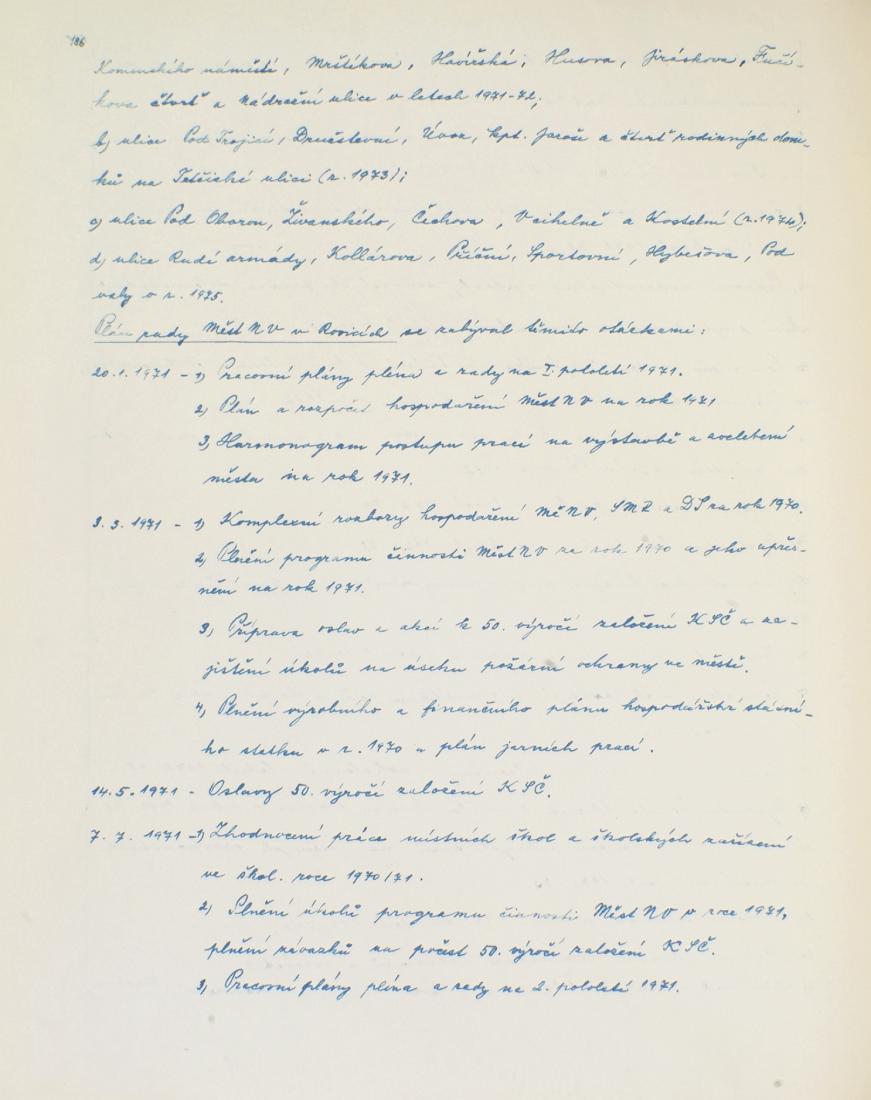 186
Komenského náměstí, Mrštíkova, Havířská, Husova, Jiráskova, Fučí-
kova čtvrť a Nádražní ulice v letech 1971-72;
b) ulice Pod Trojicí, Družstevní, Úvoz, kpt. Jaroše a čtvrť rodinných dom-
ků na Tetčické ulici (r. 1973);
c) ulice Pod Oborou, Živanského, Čechova, V cihelně a Kostelní (r. 1974);
d) ulice Rudé armády, Kollárova, Příční, Sportovní, Hybešova, Pod
valy v r. 1975.
Plán rady Měst NV v Rosicích se zabýval těmito otázkami:
20.1.1971 - 1) Pracovní plány pléna a rady na I. pololetí 1971.
2) Plán a rozpočet hospodaření Měst NV na rok 1971
3) Harmonogram postupu prací na výstavbě a zvelebení
města na rok 1971.
3. 3. 1971 - 1) Komplexní rozbory hospodaření MěNV, SMR a DS za rok 1970.
2) Plnění programu činnosti Měst NV za rok 1970 a jeho upřes-
nění na rok 1971.
3) Příprava oslav a akcí k 50. výročí založení KSČ a za-
jištění úkolů na úseku požární ochrany ve městě.
4) Plnění výrobního a finančního plánu hospodářství státní-
ho statku v r. 1970 a plán jarních prací.
14.5.1971 - Oslavy 50. výročí založení KSČ.
7. 7. 1971 - 1) Zhodnocení práce místních škol a školských zařízení
ve škol. roce 1970/71.
2) Plnění úkolů programu činnosti Měst NV v roce 1971,
plnění závazků na počest 50. výročí založení KSČ.
3) Pracovní plány pléna a rady na 2. pololetí 1971.